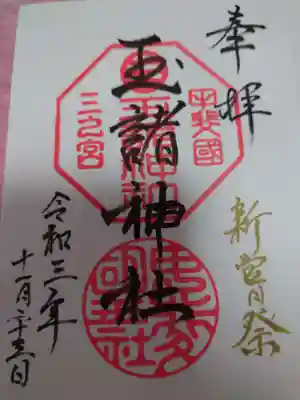 奉拝
新嘗祭
甲斐國
三之宮
玉諸神社
令和三年
十一月二十三日